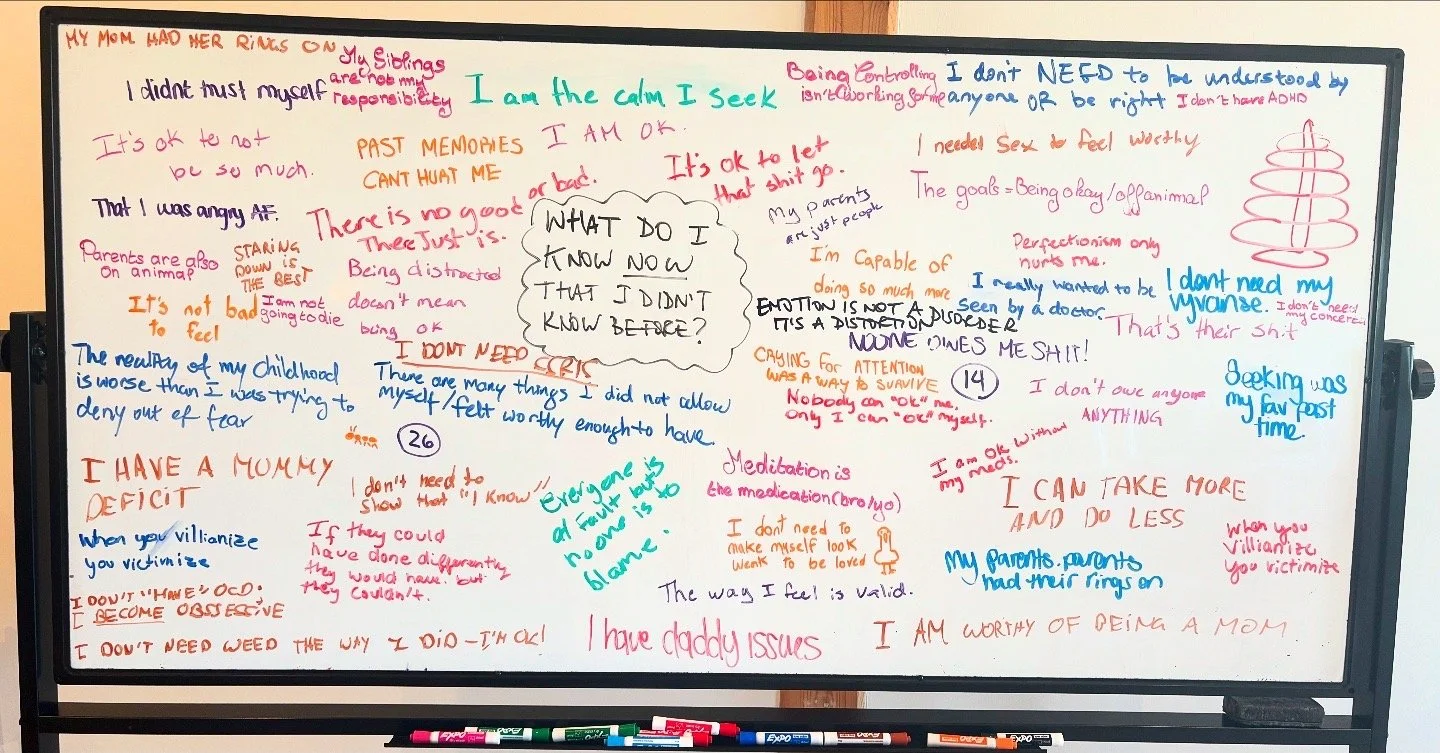 MY MOM HAD HER RINGS ON
I didnt trust myself
My Siblings
are not my
responsibility
I am the calm I seek
Being Controlling
isn't working for me
I don't NEED to be understood by
anyone OR be right
I don't have ADHD
It's ok to not
be so much.
PAST MEMORIES
CANT HURT ME
I AM OK.
It's ok to let
that shit go.
I needed Sex to feel worthy
The goals = Being okay/off animal
That I was angry AF.
There is no good or bad.
There Just is.
My parents
are just people
WHAT DO I
KNOW NOW
THAT I DIDN'T
KNOW BEFORE?
Parents are also
on animal
STARING
DOWN IS
THE BEST
Being distracted
doesn't mean
being ok
It's not bad
to feel
I am not
going to die
I'm Capable of
doing so much more
Perfectionism only
hurts me.
I really wanted to be
seen by a doctor.
I dont need my
vyvanse.
I don't need
my concerta
EMOTION IS NOT A DISORDER
IT'S A DISTORTION
That's their shit
NOONE OWES ME SHIT!
The reality of my childhood
is worse than I was trying to
deny out of fear
I DONT NEED
There are many things I did not allow
myself/felt worthy enough to have.
CRYING for ATTENTION
WAS A WAY to SURVIVE
14
Nobody can "ok" me.
Only I can "ok" myself.
I don't owe anyone
ANYTHING
Seeking was
my fav past
time.
26
I HAVE A MOMMY
DEFICIT
I don't need to
show that "I know"
everyone is
at fault but
noone is to
blame.
Meditation is
the medication (bro/yo)
I am OK without
my meds.
I CAN TAKE MORE
AND DO LESS
When you villianize
you victimize
If they could
have done differently
they would have. but
they couldn't.
I dont need to
make myself look
weak to be loved
My parents.parents
had their rings on
When you
villianize
you victimize
I DON'T "HAVE" OCD.
I BECOME OBSSESSIVE
The way I feel is valid.
I DON'T NEED WEED THE WAY I DID - I'M OK!
I have daddy issues
I AM WORTHY OF BEING A MOM
EXPO
EXPO
EXPO
EXPO